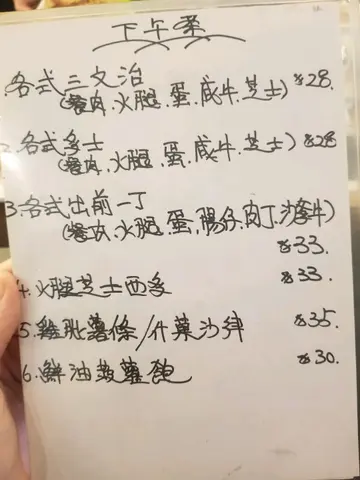 下午茶
1.各式三文治
(餐肉.火腿.蛋.咸牛.芝士) $28.
2.各式多士
(餐肉.火腿.蛋.咸牛.芝士) $28
3.各式出前一丁
(餐肉.火腿.蛋.腸仔.肉丁.沙爹牛)
$33.
4.火腿芝士西多 $33.
5.雞肶薯條/什菓沙律 $35.
6.鮮油菠蘿飽 $30.